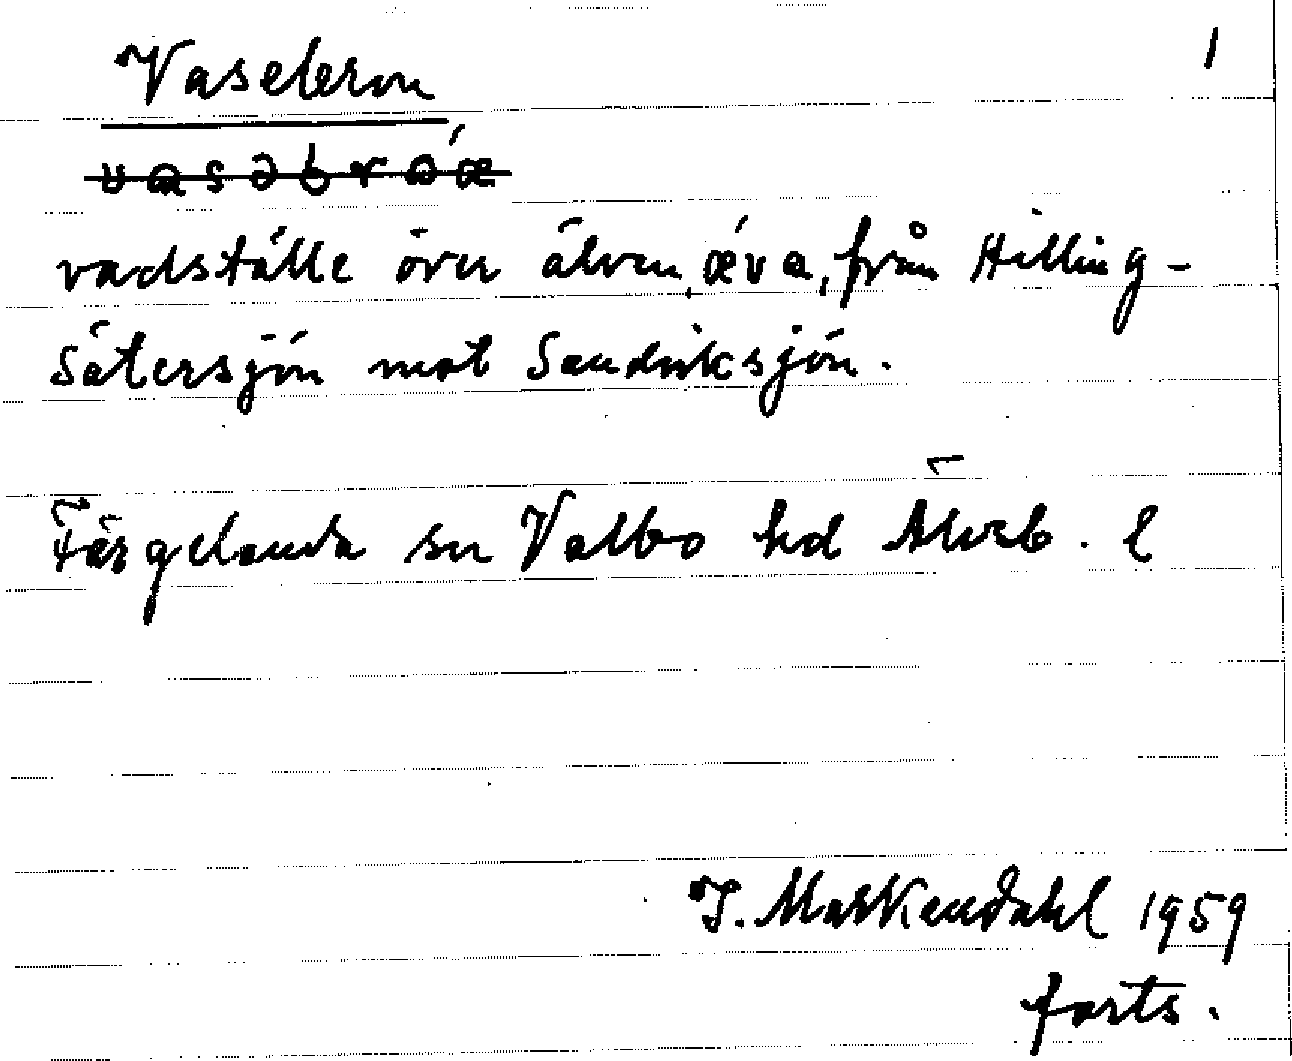 Vasebron 1
vasəbrάæ
vadställe över älven, æ´va, från Hilling-
sätersjön mot Sandviksjön.
Färgelanda sn Valbo hd Älvsb. l
J. Markendahl 1959
forts.